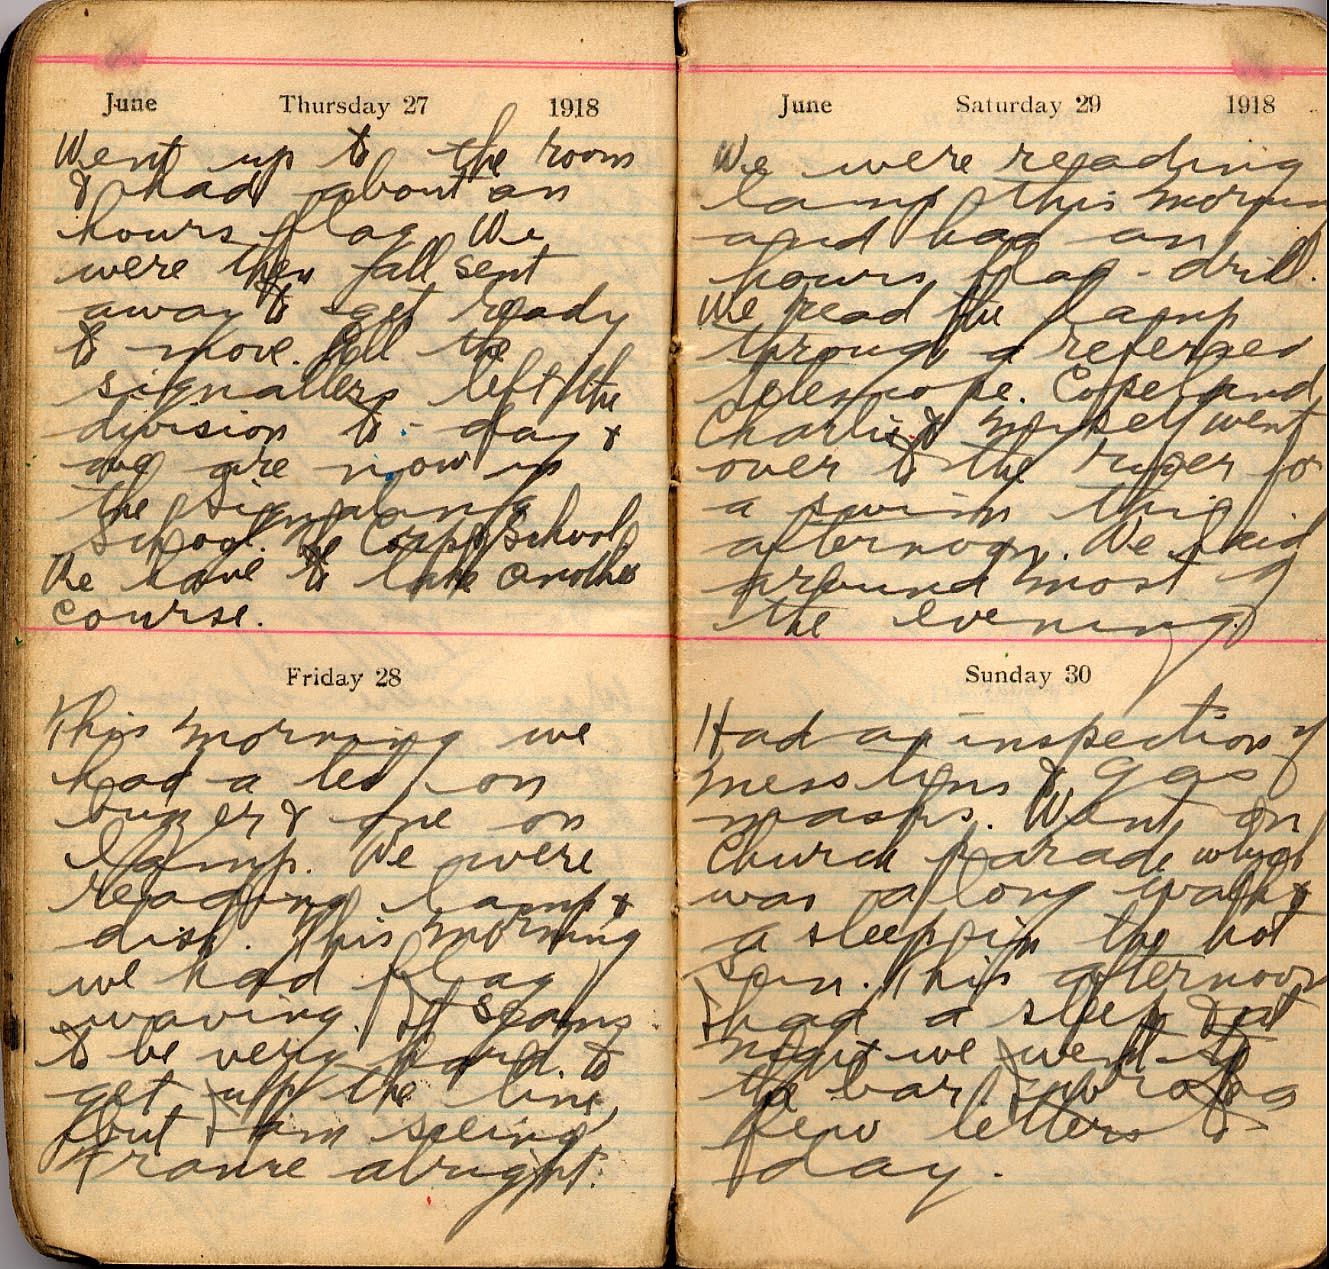 June Thursday 27 1918
Went up to the room
& had about an
hours flag We
were then all sent
away to get ready
to move. All the
signallers left the
division to-day &
are now in
the signaling
School. The Corps School
We have to take another
course.
Friday 28
This morning we
had a test on
buzzer & one on
lamp. We were
reading lamp &
disk. This morning
we had flag
waving. It seams
to be very hard to
get up the line,
but I am seeing
France alright.
June Saturday 29 1918
We were reading
lamp this morning
and had an
hours flag-drill.
We read the lamp
through a reversed
telescope. Copeland,
Charlie & myself went
over to the river for
a swim this
afternoon. We laid
around most of
the evening.
Sunday 30
Had an inspection of
mess tins & gas
masks. Went on
Church parade which
was a long walk &
a sleep in the hot
sun. This afternoon
I had a sleep & at
night we went to
the bar. I wrote a
few letters to-
day.